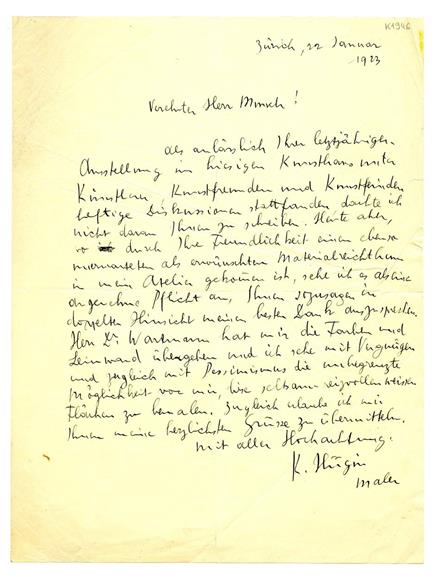 K1946
Zürich, 22 Januar
1923
Verehrter Herr Munch!
als anlässlich Ihrer letztjährigen
Ausstellung im hiesigen Kunsthaus unter
Künstlern, Kunstfreunden und Kunstfeinden
heftige Diskussionen stattfanden dachte ich
nicht daran Ihnen zu schreiben. Heute aber,
wo durch Ihre Freundlichkeit einen ebenso
unerwarteten als erwünschten Materialreichtum
in mein Atelier gekommen ist, sehe ich es als eine
angenehme Pflicht an, Ihnen sozusagen in
doppelter Hinsicht meinen besten Dank auszusprechen.
Herr Dr. Wartmann hat mir die Farben und
Leinwand übergeben und ich sehe mit Vergnügen
und zugleich mit Pessimismus die unbegrenzte
Möglichkeit vor mir, diese seltsam reizvollen weissen
Flächen zu bemalen. Zugleich erlaube ich mir
Ihnen meine herzlichsten Grüsse zu übermitteln.
Mit aller Hochachtung.
K. Hügin
Maler